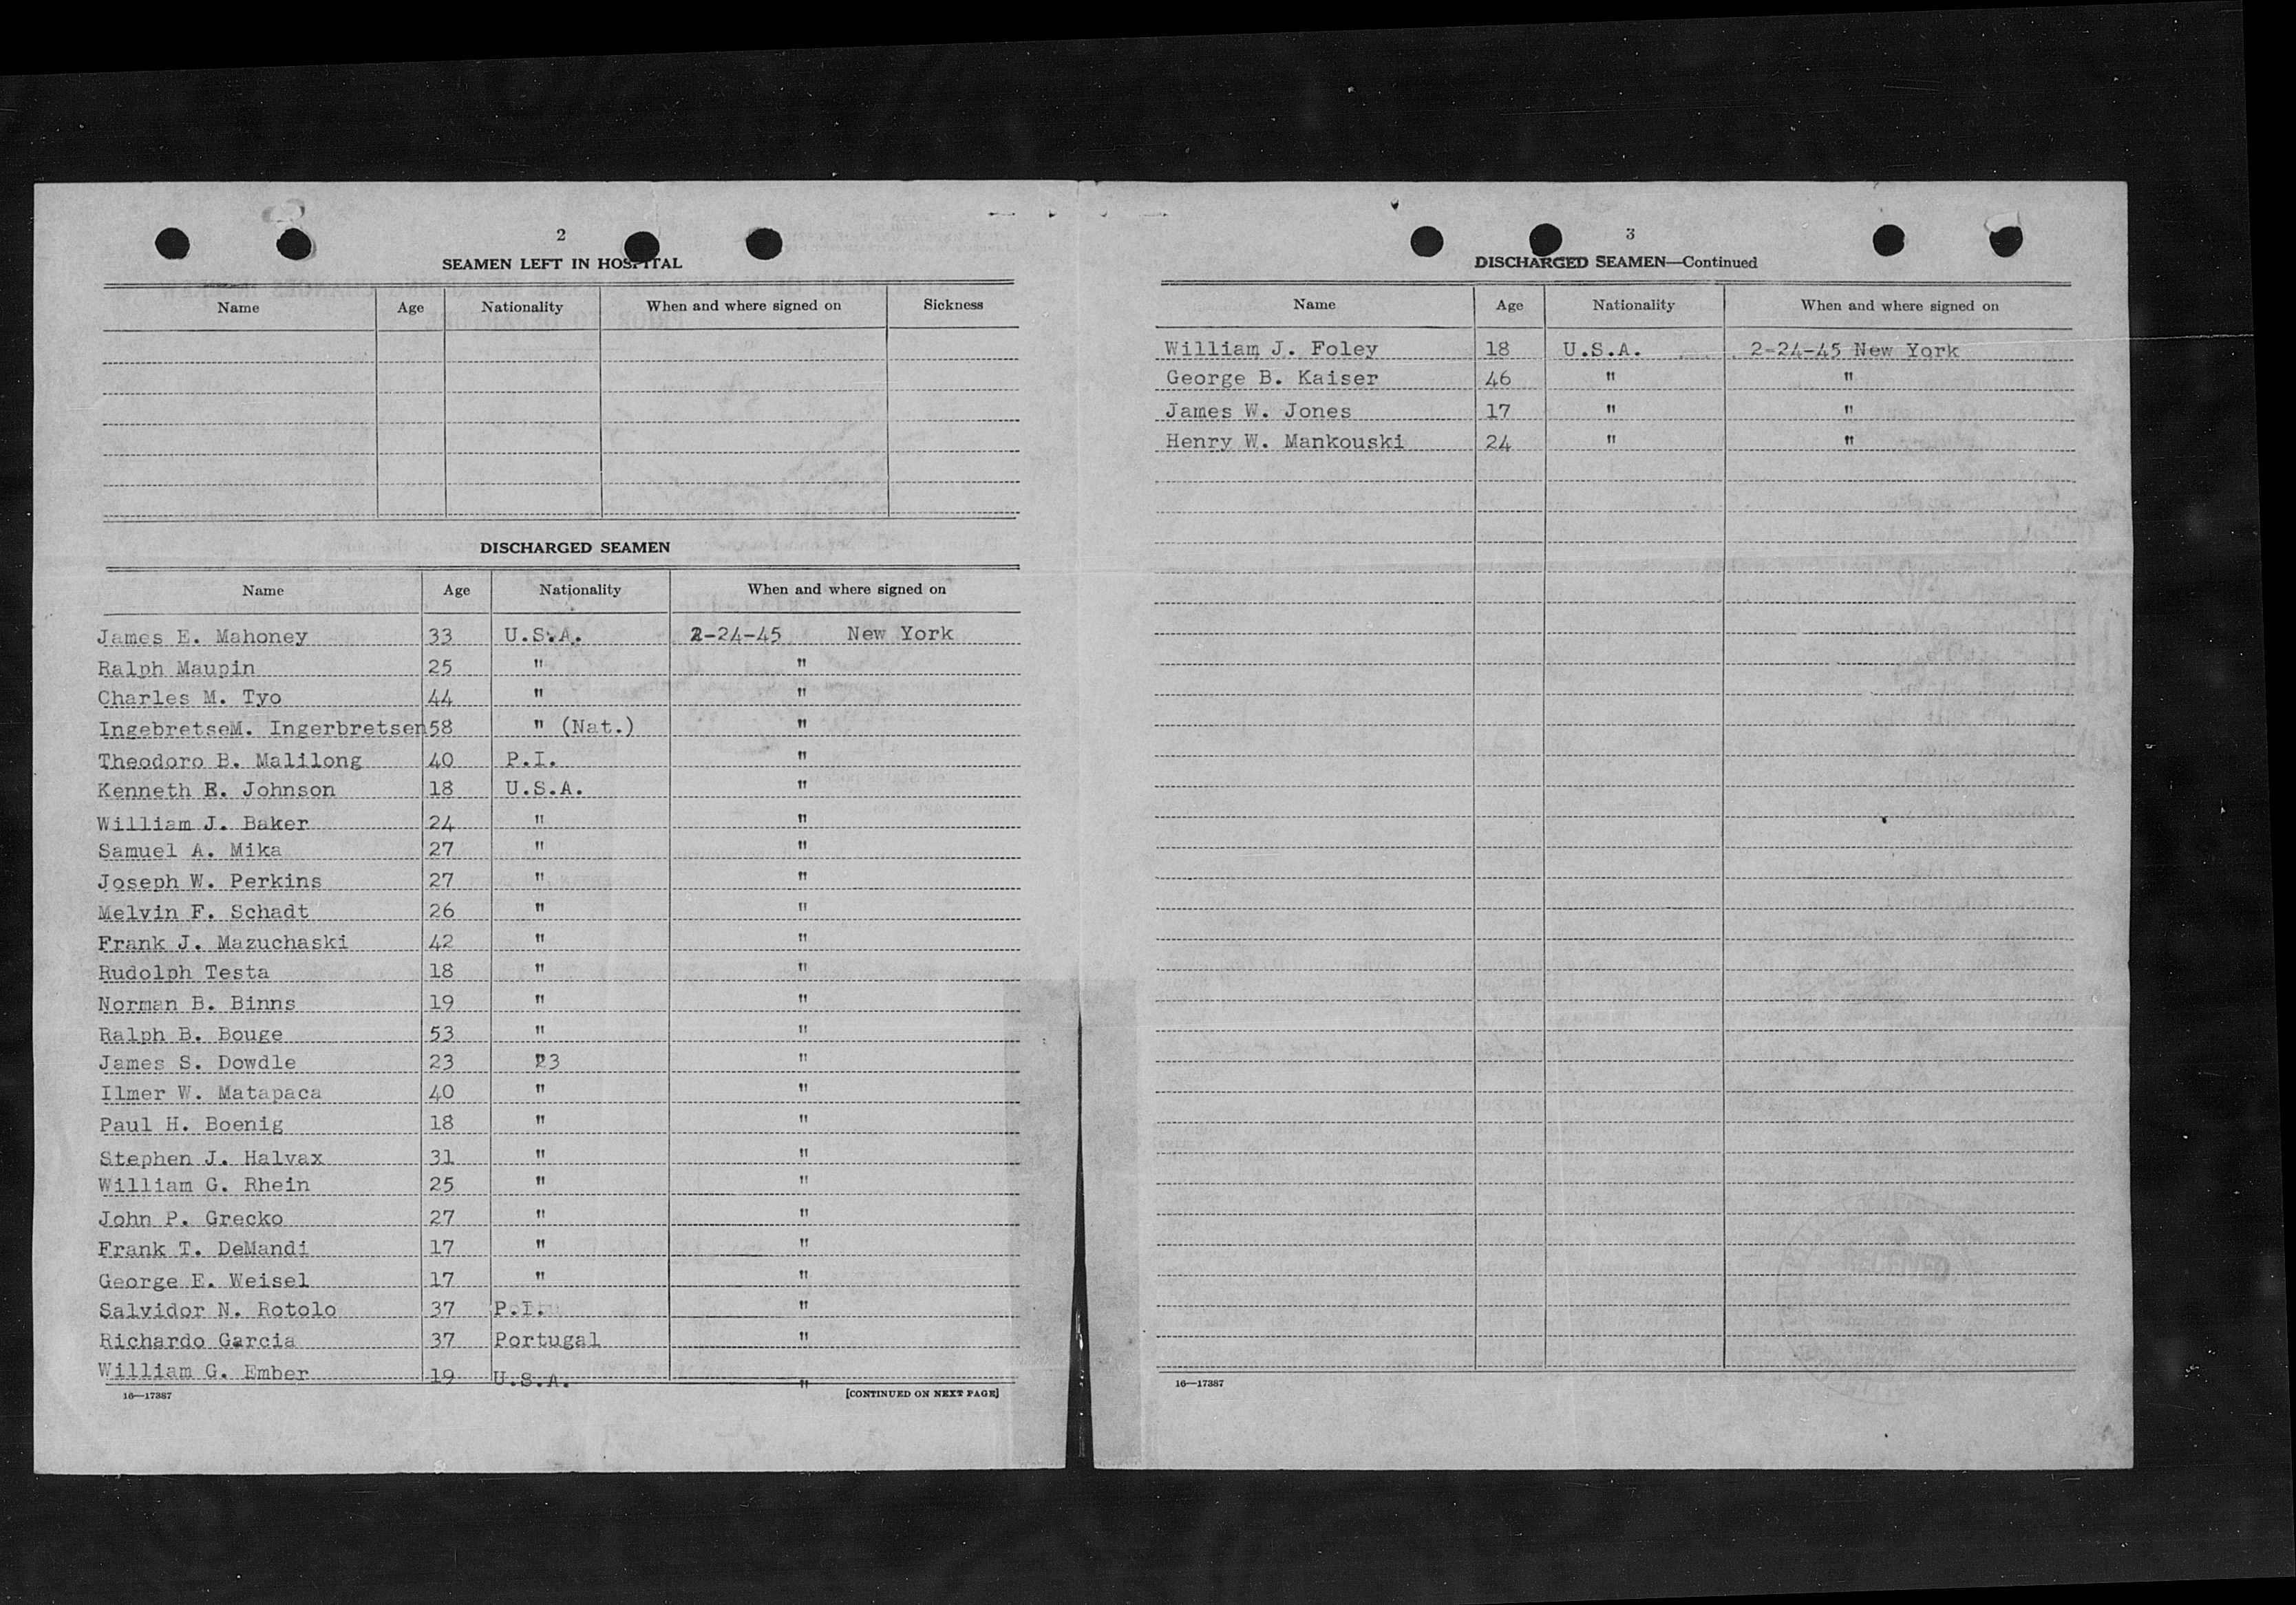 2
SEAMEN LEFT IN HOSPITAL
Name Age Nationality When and where signed on Sickness
DISCHARGED SEAMEN
Name Age Nationality When and where signed on
James E. Mahoney 33 U.S.A. 2-24-45 New York
Ralph Maupin 25 " "
Charles M. Tyo 44 " "
IngebretseM. Ingerbretsen 58 " (Nat.) "
Theodoro B. Malilong 40 P.I. "
Kenneth E. Johnson 18 U.S.A. "
William J. Baker 24 " "
Samuel A. Mika 27 " "
Joseph W. Perkins 27 " "
Melvin F. Schadt 26 " "
Frank J. Mazuchaski 42 " "
Rudolph Testa 18 " "
Norman B. Binns 19 " "
Ralph B. Bouge 53 " "
James S. Dowdle 23 "23 "
Ilmer W. Matapaca 40 " "
Paul H. Boenig 18 " "
Stephen J. Halvax 31 " "
William G. Rhein 25 " "
John P. Grecko 27 " "
Frank T. DeMandi 17 " "
George E. Weisel 17 " "
Salvidor N. Rotolo 37 P.I. "
Richardo Garcia 37 Portugal "
William G. Ember 19 U.S.A. "
16—17387 [CONTINUED ON NEXT PAGE]
3
DISCHARGED SEAMEN—Continued
Name Age Nationality When and where signed on
William J. Foley 18 U.S.A. 2-24-45 New York
George B. Kaiser 46 " "
James W. Jones 17 " "
Henry W. Mankouski 24 " "
16—17387